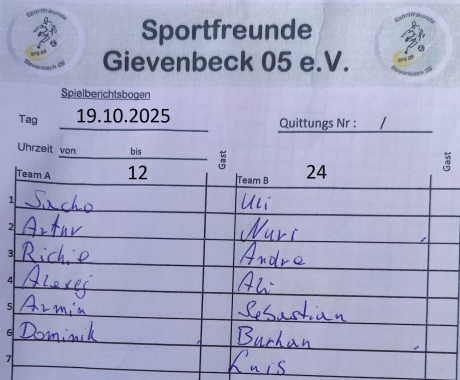 Sportfreunde
Gievenbeck 05
SFG 05
Sportfreunde
Gievenbeck 05 e.V.
Sportfreunde
Gievenbeck 05
SFG 05
Spielberichtsbogen
Tag 19.10.2025 Quittungs Nr : /
Uhrzeit von bis
Team A 12 Gast Team B 24 Gast
1 Sacho Uli
2 Artur Nuri
3 Richie Andre
4 Alexej Ali
5 Armin Sebastian
6 Dominik Burhan
7 Luis